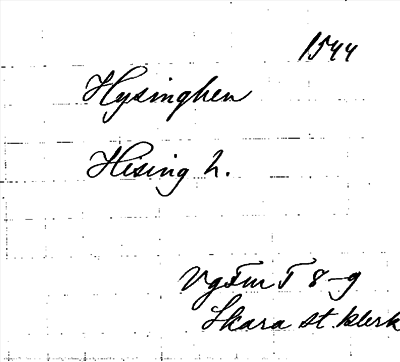 1544
Hysinghen
Hising h.
VgFmT 8-9
Skara st. klerk